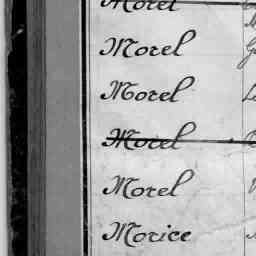 Morel
Morel
Morel
Morel
Morel
Morice